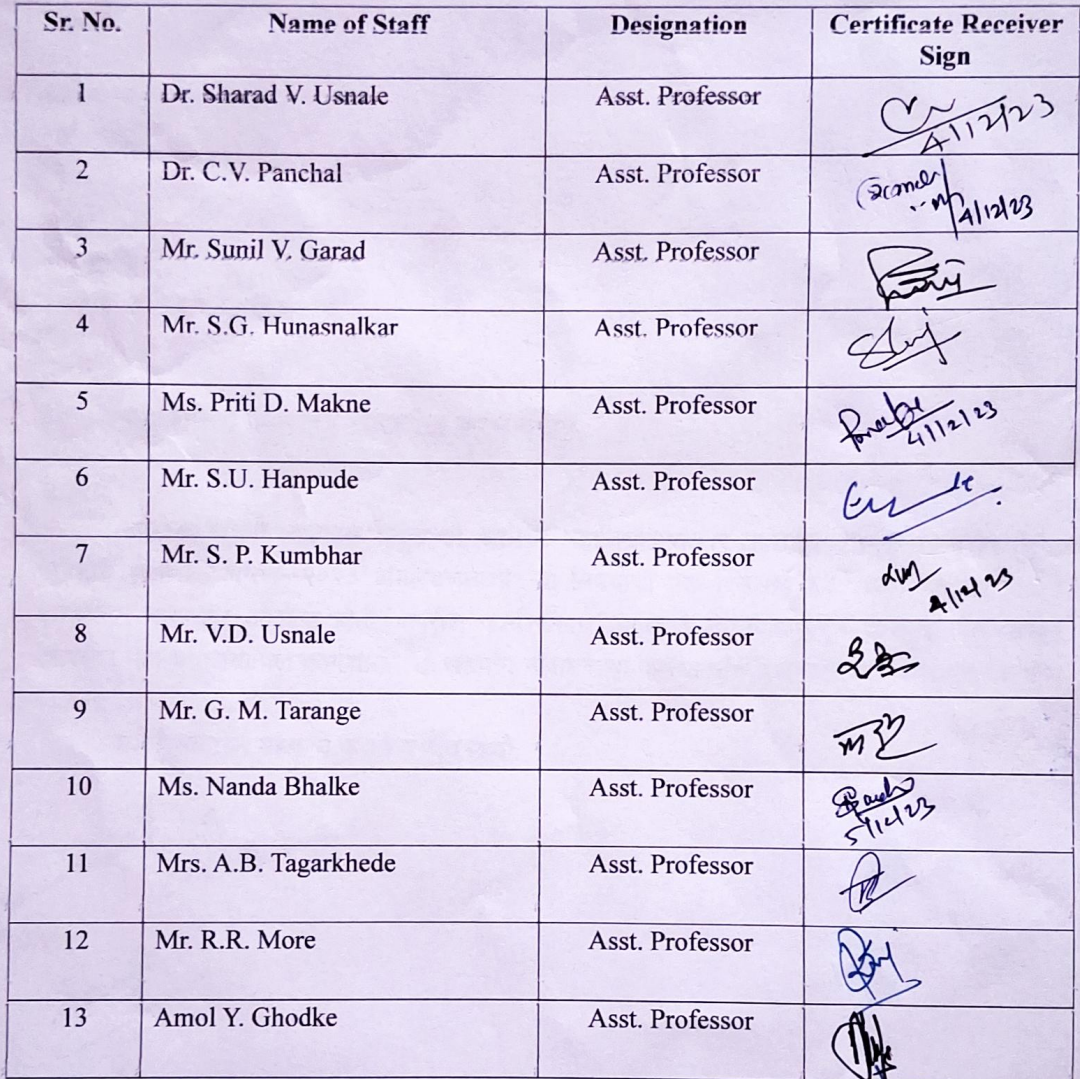 Sr. No. Name of Staff Designation Certificate Receiver Sign
1 Dr. Sharad V. Usnale Asst. Professor 4/12/23
2 Dr. C.V. Panchal Asst. Professor 4/12/23
3 Mr. Sunil V. Garad Asst. Professor
4 Mr. S.G. Hunasnalkar Asst. Professor
5 Ms. Priti D. Makne Asst. Professor 4/12/23
6 Mr. S.U. Hanpude Asst. Professor
7 Mr. S. P. Kumbhar Asst. Professor 4/12/23
8 Mr. V.D. Usnale Asst. Professor
9 Mr. G. M. Tarange Asst. Professor
10 Ms. Nanda Bhalke Asst. Professor 5/12/23
11 Mrs. A.B. Tagarkhede Asst. Professor
12 Mr. R.R. More Asst. Professor
13 Amol Y. Ghodke Asst. Professor